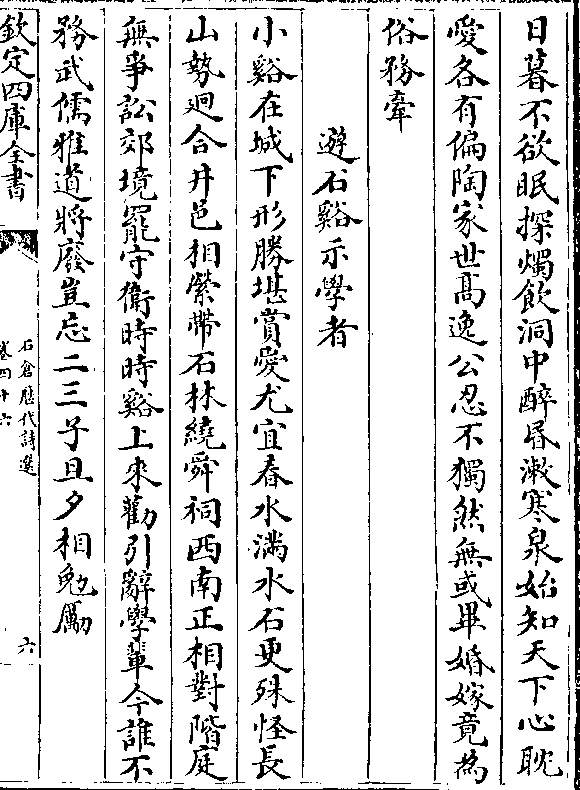 日暮不欲眠探燭飲洞中醉昏漱寒泉始知天下心耽
愛各有偏陶家世髙逸公忍不獨然無或畢婚嫁竟為
俗務牽
遊石谿示學者
小谿在城下形勝堪賞愛尤宜春水滿水石更殊怪長
山勢廻合井邑相縈帶石林繞舜祠西南正相對階庭
無爭訟郊境罷守衛時時谿上來勸引辭學輩今誰不
務武儒雅道將廢豈忘二三子旦夕相勉勵
欽定四庫全書
石倉歷代詩選
卷四十六
六